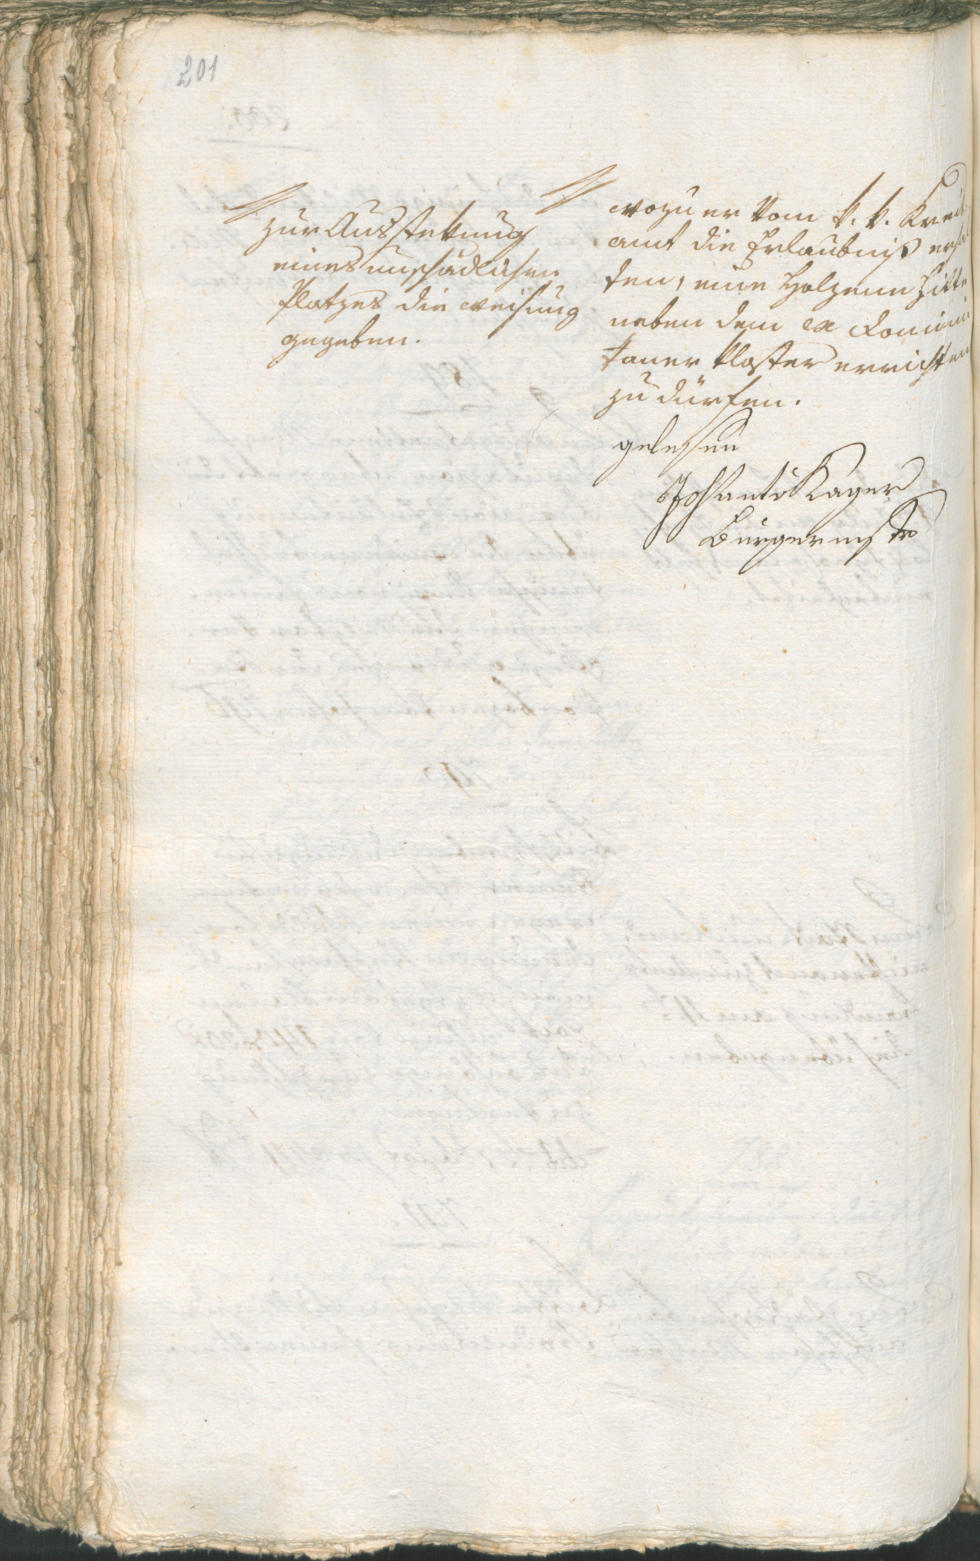 201
zur Aussteckung
eines unschädlichen
Platzes die weisung
gegeben.
wozu er vom k. k. Kreis
amt die Erlaubniß erhal
ten, eine Holzene Hütte
neben dem ex Domini
kaner kloster errichten
zu dürfen.
gelesen
Joh Kager
Burgermstr